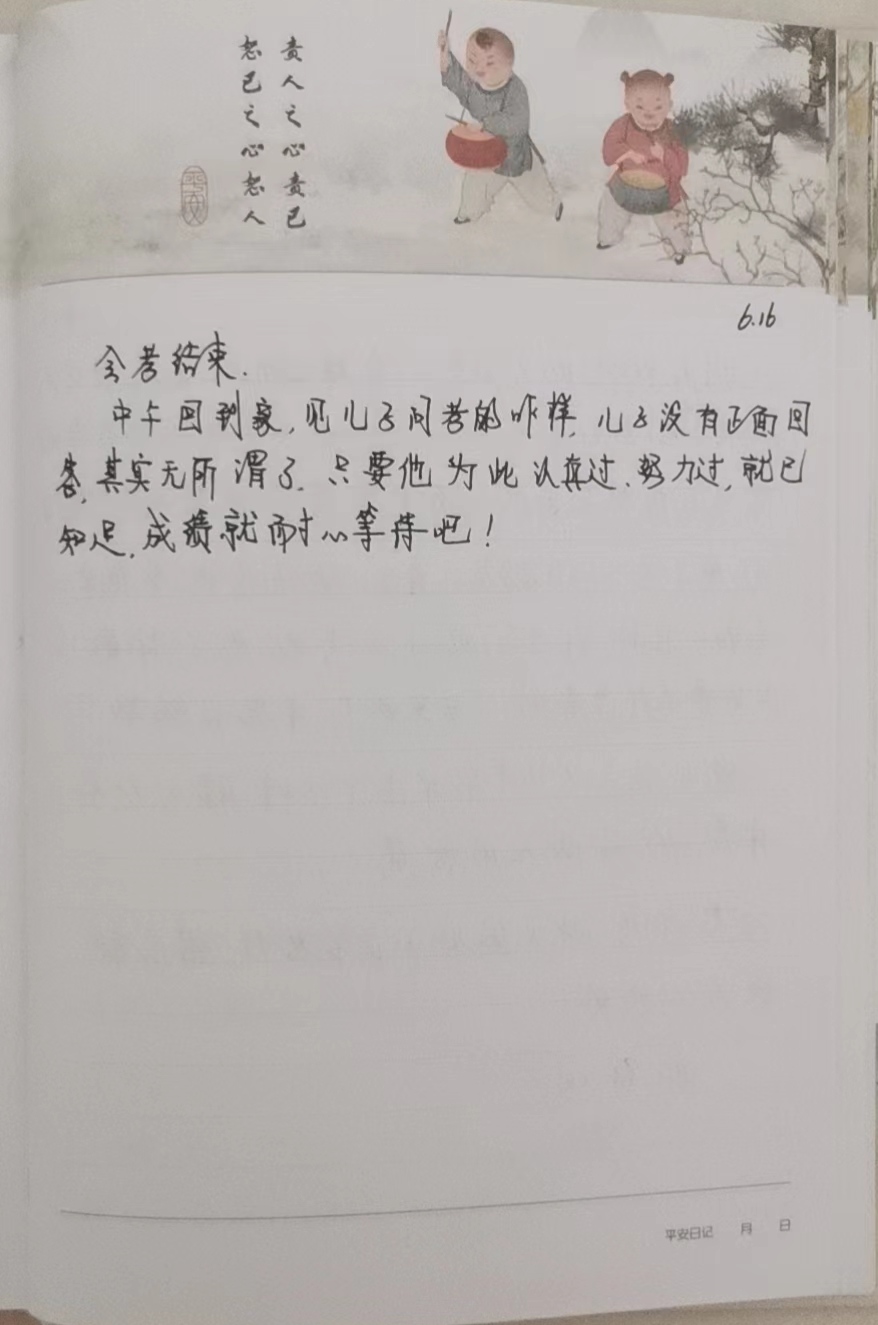 责人之心责己
恕己之心恕人
平安
6.16
会考结束.
中午回到家,见儿子问考的咋样,儿子没有正面回
答,其实无所谓了.只要他为此认真过、努力过,就已
知足,成绩就耐心等待吧!
平安日记 月 日